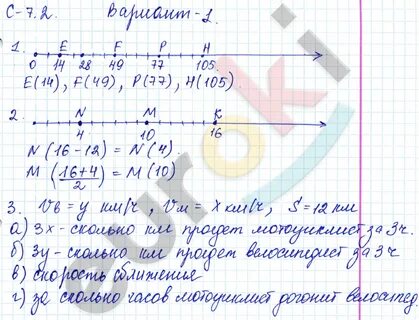 С-7.2. Вариант-1.
1. E F P H
0 14 28 49 77 105
E(14), F(49), P(77), H(105).
2. N M K
4 10 16
N(16-12) = N(4).
M((16+4)/2) = M(10)
3. Vв = y км/ч, Vм = x км/ч, S = 12 км
а) 3x - сколько км проедет мотоциклист за 3ч.
б) 3y - сколько км проедет велосипедист за 3ч
в) скорость сближения
г) за сколько часов мотоциклист догонит велосипед.
euroki